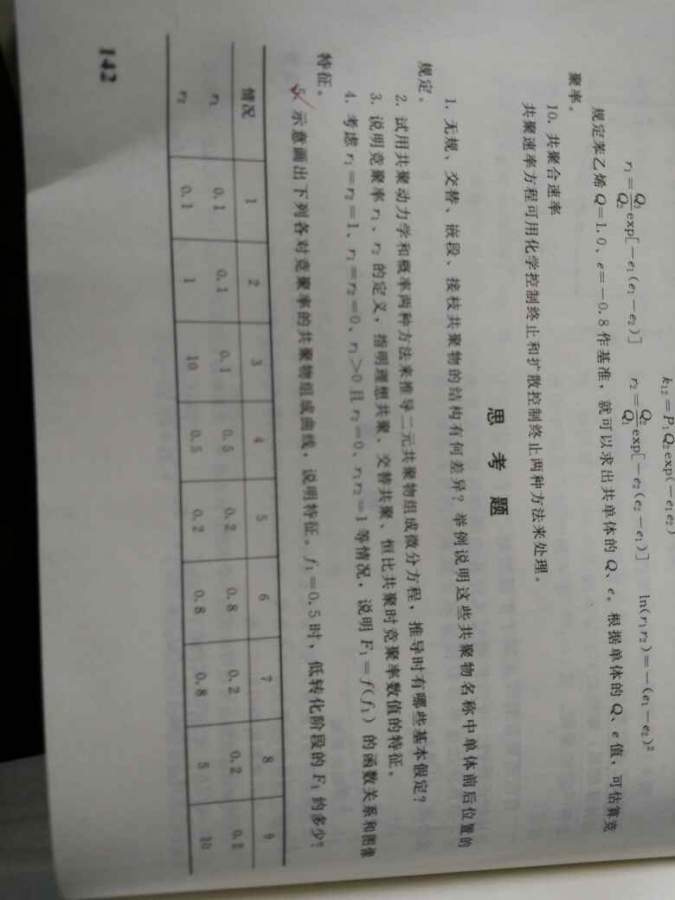 k₁₂=P₁Q₂exp(-e₁e₂)
r₁=Q₁/Q₂ exp[-e₁(e₁-e₂)] r₂=Q₂/Q₁ exp[-e₂(e₂-e₁)] ln(r₁r₂)=-(e₁-e₂)²
规定苯乙烯Q=1.0、e=-0.8作基准，就可以求出共单体的Q、e。根据单体的Q、e值，可估算竞
聚率。
10. 共聚合速率
共聚速率方程可用化学控制终止和扩散控制终止两种方法来处理。
思 考 题
1. 无规、交替、嵌段、接枝共聚物的结构有何差异？举例说明这些共聚物名称中单体前后位置的
规定。
2. 试用共聚动力学和概率两种方法来推导二元共聚物组成微分方程，推导时有哪些基本假定？
3. 说明竞聚率r₁、r₂的定义，指明理想共聚、交替共聚、恒比共聚时竞聚率数值的特征。
4. 考虑r₁=r₂=1、r₁=r₂=0、r₁>0且r₂=0、r₁r₂=1等情况，说明F₁=f(f₁)的函数关系和图像
特征。
5. 示意画出下列各对竞聚率的共聚物组成曲线，说明特征。f₁=0.5时，低转化阶段的F₁约多少？
情况 1 2 3 4 5 6 7 8 9
r₁ 0.1 0.1 0.1 0.5 0.2 0.8 0.2 0.2 0.2
r₂ 0.1 1 10 0.5 0.2 0.8 0.8 5 10
142